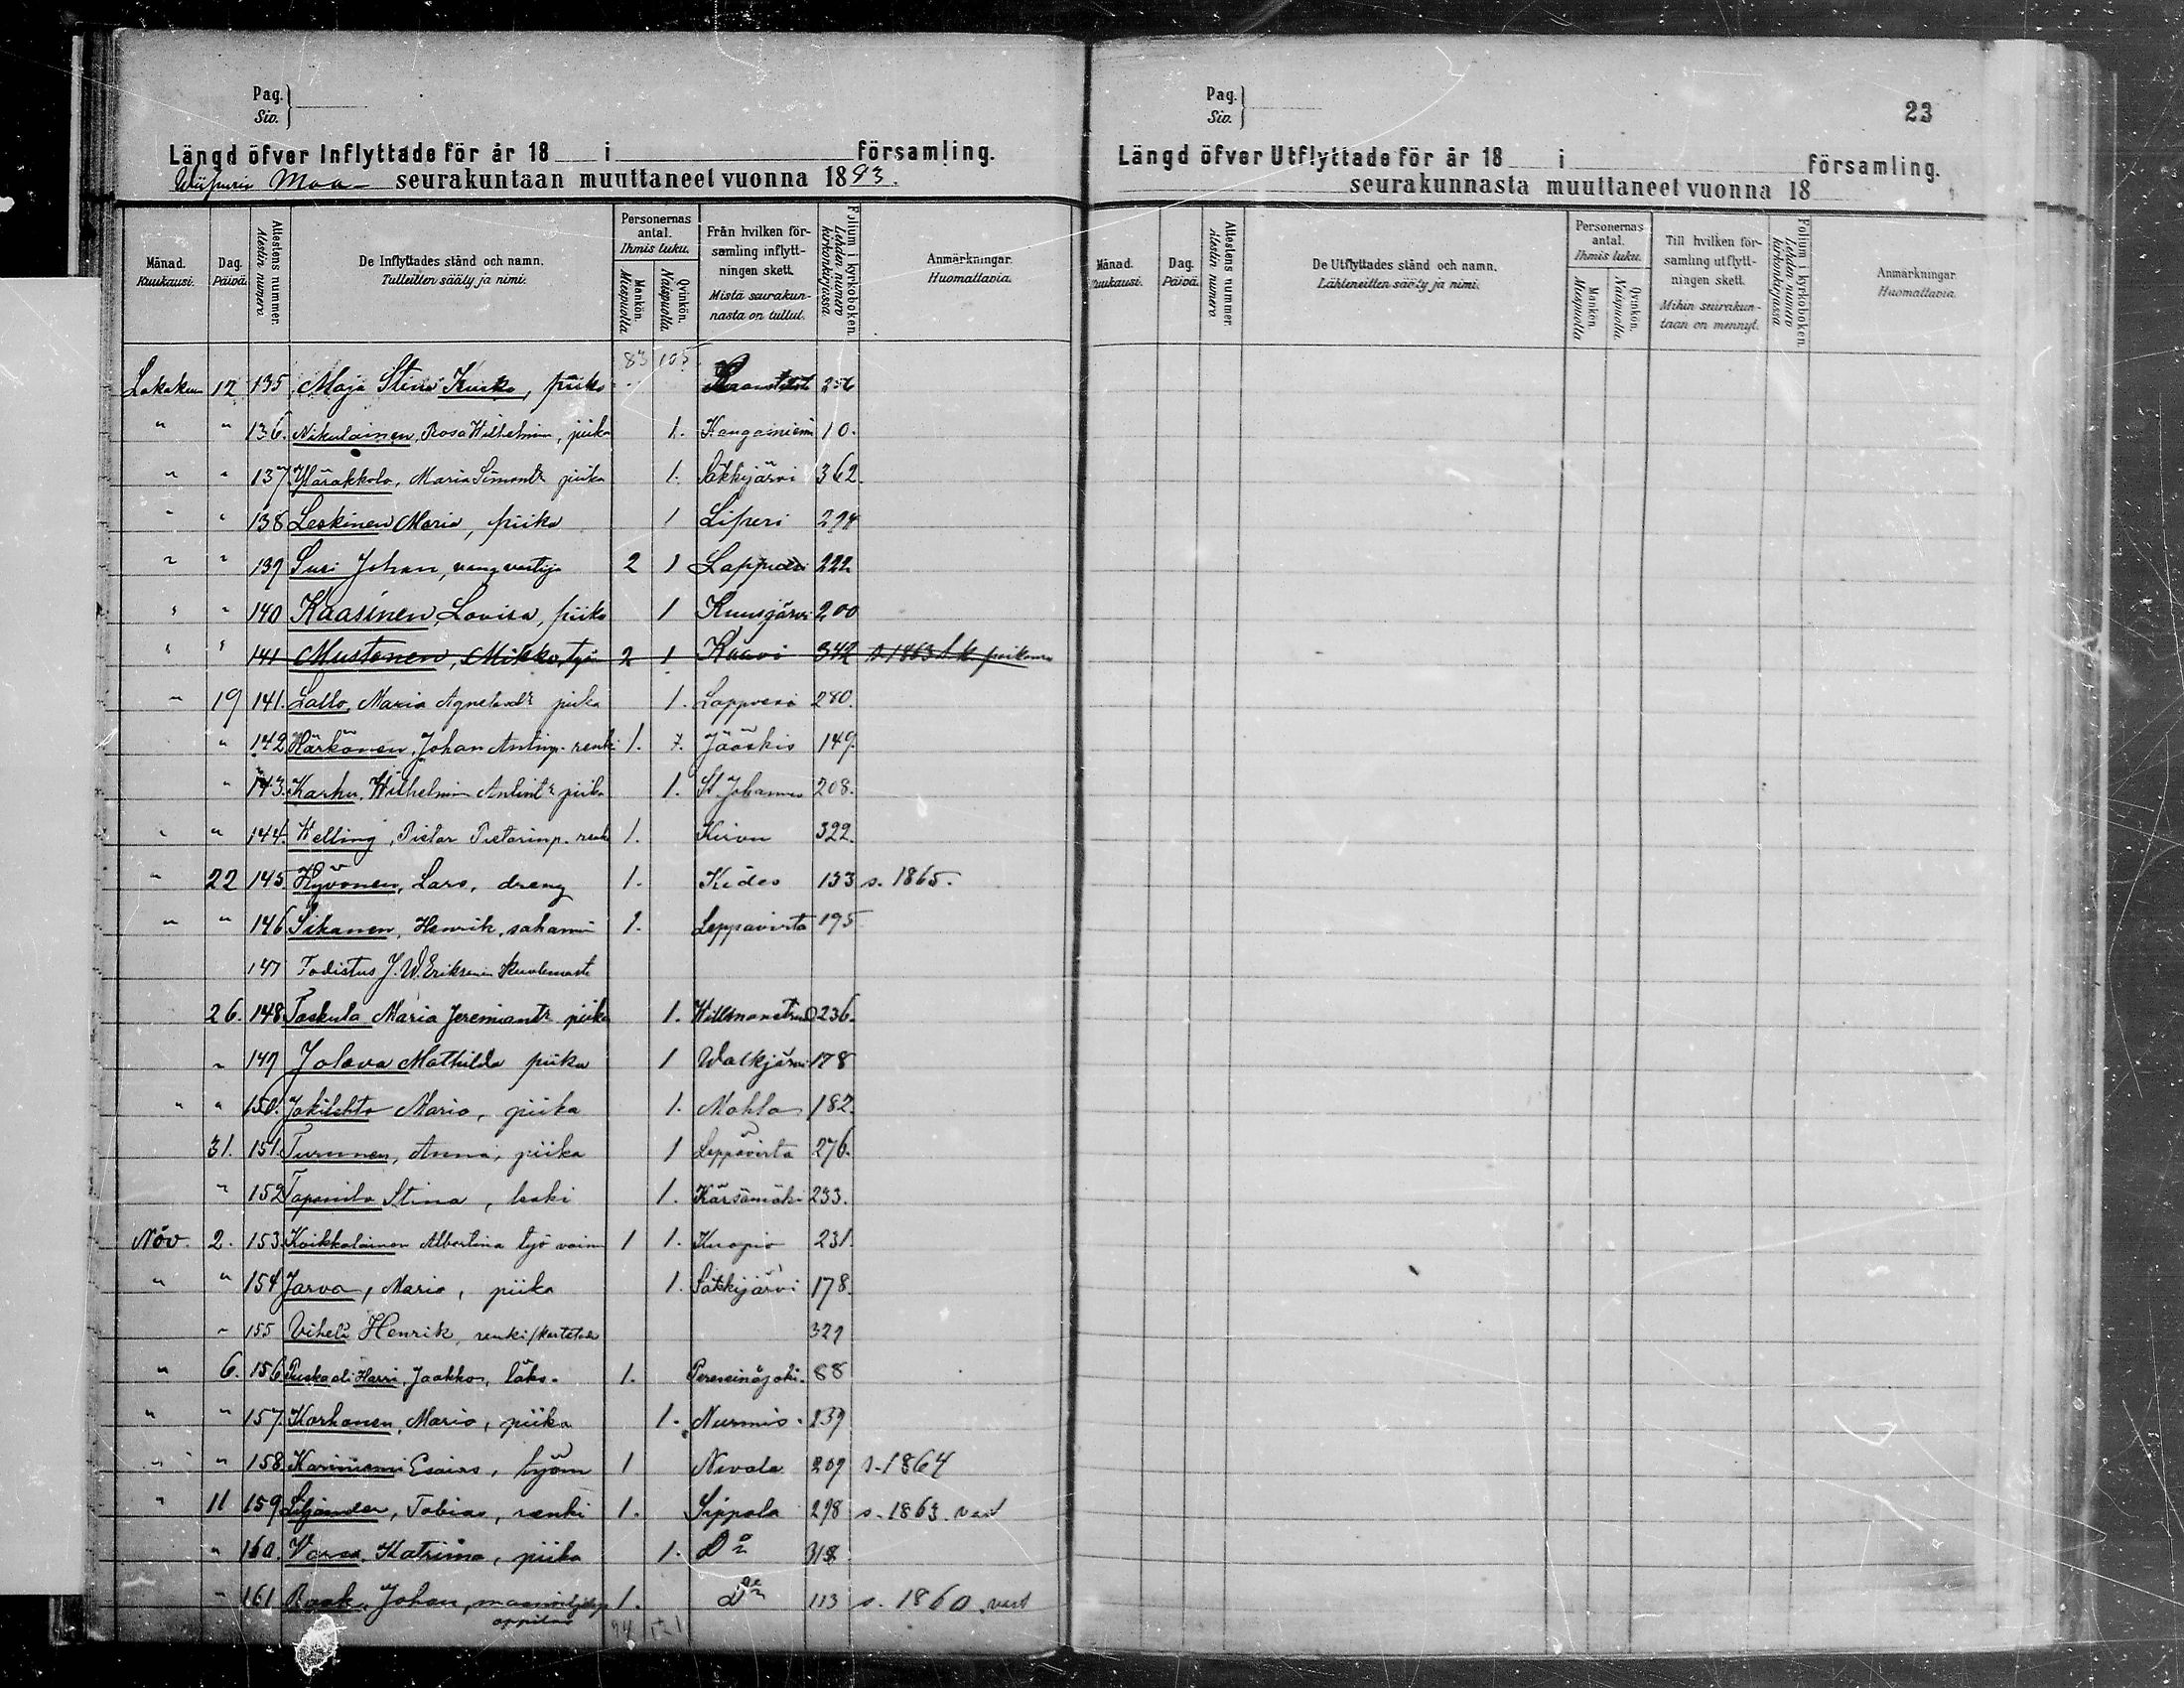 Pag.
Siv.
Längd öfver Inflyttade för år 18 i församling.
Wiipurin Maa- seurakuntaan muuttaneet vuonna 1883.
Månad. Kuukausi. Dag. Päivä. Attestens nummer. Atestin numero. De Inflyttades stånd och namn. Tulleitten sääty ja nimi. Personernas antal. Ihmis luku. Mankön. Miespuolia Qvinkön. Naispuolia. Från hvilken församling inflyttningen skett. Mistä seurakunnasta on tullut. Folium i kyrkoboken. Lehden numero kirkonkirjassa. Anmärkningar. Huomattavia.
83 105
Lokakuu 12 135 Maja Stina Kurko, piika 256
" " 136. Nikulainen, Rosa Wilhelmin, piika 1. Kangasniemi 10.
" " 137. Ylärakkola, Maria Simontr piika 1. Säkkijärvi 362.
" " 138 Leskinen Maria, piika 1 Liperi 294
" " 139 Susi Johan, vangvartija 2 1 Lappvesi 222
" " 140 Kaasinen, Lovisa, piika 1 Kuusjärvi 200
" " 141 Mustonen, Mikko, työ 2 1 Kaavi 342 s. 1863
" 19 141. Lallo, Maria Agnetantr piika 1. Lappvesi 280.
" 142 Härkönen, Johan Antinp. renki 1. 7. Jääskis 149.
" 143. Karhu, Wilhelmin Antintr piika 1. St Johannes 208.
" " 144. Welling, Pietar Pietarinp. renki 1. Kirvu 322.
" 22 145 Hyvönen, Lars, dreng 1. Kides 133 s. 1865.
" " 146 Sikanen, Henrik, sahami 1. Leppävirta 195
147 Todistus J. W. Eriksenin kuolemasta
26. 148. Taskula Maria Jeremiantr piika 1. Willmanstrand 236.
" 149 Jolava Mathilda piika 1 Walkjärvi 178
" " 150. Jokilehto Maria, piika 1. Mohla 182.
31. 151. Turunen, Anna, piika 1 Leppävirta 276.
" 152 Tapanila Stina, leski 1. Kärsämäki 233.
Nov. 2. 153. Koikkalainen Albertina työ vaim 1 1. Kuopio 231.
" " 154 Jarva, Maria, piika 1. Säkkijärvi 178.
" 155 Viheli Henrik, renki 329
" 6. 156. Puska ali Harri, Jaakko, läks. 1. Peräseinäjoki. 88
" " 157. Karhanen, Maria, piika 1. Nurmis. 239
" " 158. Kariniemi Esaias, työm 1 Nivala 209 s. 1864
" 11 159 Liljander, Tobias, renki 1. Sippola 298 s. 1863. vast
" 160. Varsa, Katriina, piika 1. Do 318
" 161 Raak, Johan, maanviljelys oppilas 1. Do 113 s. 1860. vast
94 121
Pag.
Siv.
23
Längd öfver Utflyttade för år 18 i församling.
seurakunnasta muuttaneet vuonna 18
Månad. Kuukausi. Dag. Päivä. Attestens nummer. Atestin numero De Utflyttades stånd och namn. Lähteneitten sääty ja nimi. Personernas antal. Ihmis luku. Mankön Miespuolia Qvinkön. Naispuolia. Till hvilken församling utflyttningen skett. Mihin seurakuntaan on mennyt. Folium i kyrkoboken. Lehden numero kirkonkirjassa Anmärkningar. Huomattavia.